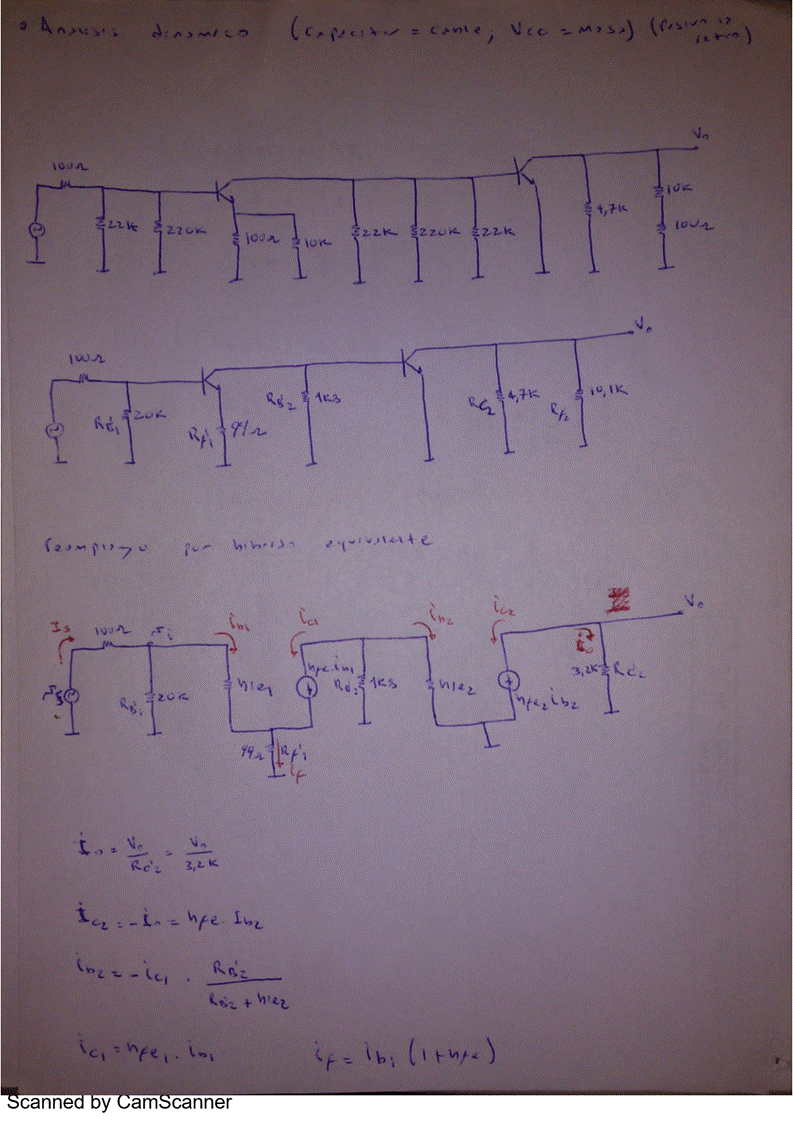 Analisis dinamico (Capacitor = cable; Vcc = masa)
100Ω
Vo
22K
220K
100Ω
10K
22K
220K
22K
4,7K
10K
100Ω
100Ω
Vo
20K
Rf'1
99Ω
RB'2
1K8
RC2
4,7K
Rf2
10,1K
reemplazo por hibrido equivalente
Is
100Ω
ib1
ic1
ib2
ic2
Vo
RB'1
20K
hie1
hfe.ib1
RB'2
1K8
hie2
hfe2 ib2
3,2K
RC'2
99Ω
Rf'1
if
Io = Vo / RC'2 = Vo / 3,2K
Ic2 = -Io = hfe . Ib2
ib2 = -ic1 . RB'2 / RB'2 + hie2
ic1 = hfe1 . ib1
if = ib1 (1+hfe)
Scanned by CamScanner